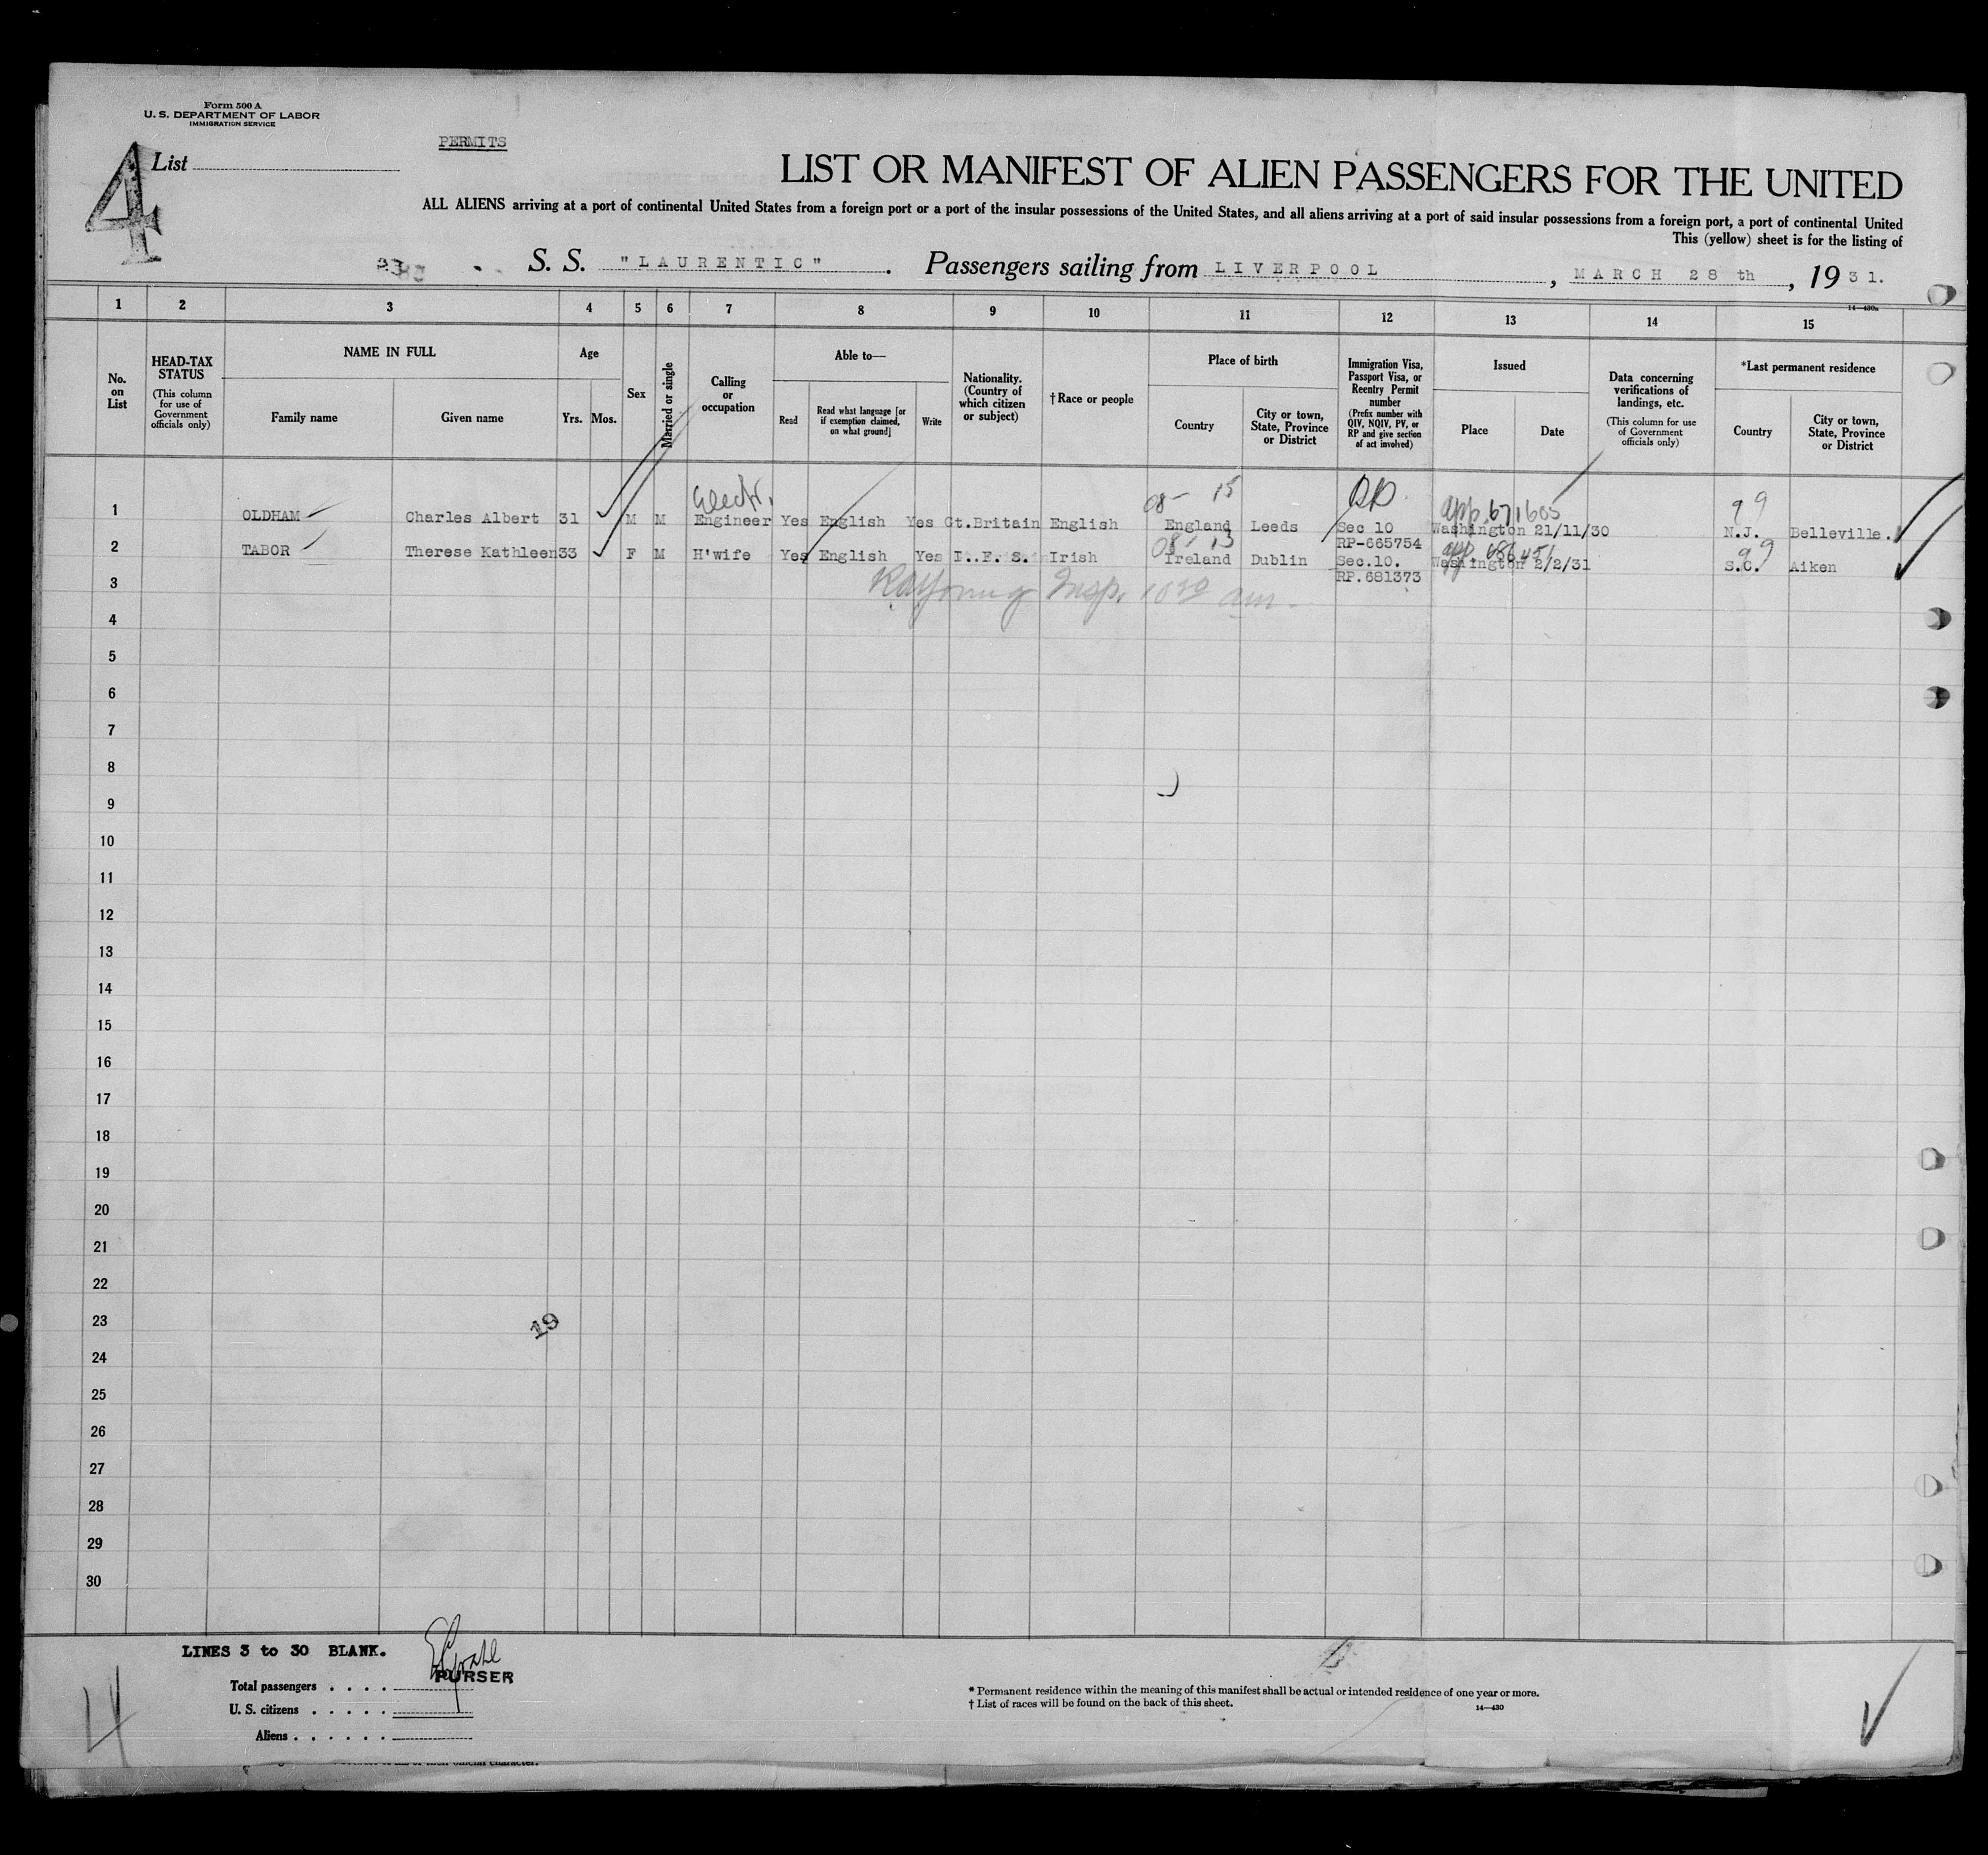 Form 500 A
U. S. DEPARTMENT OF LABOR
IMMIGRATION SERVICE
PERMITS
4 List
LIST OR MANIFEST OF ALIEN PASSENGERS FOR THE UNITED
ALL ALIENS arriving at a port of continental United States from a foreign port or a port of the insular possessions of the United States, and all aliens arriving at a port of said insular possessions from a foreign port, a port of continental United
This (yellow) sheet is for the listing of
S. S. "LAURENTIC". Passengers sailing from LIVERPOOL, MARCH 28th, 1931.
14—430a
1 2 3 4 5 6 7 8 9 10 11 12 13 14 15
No. on List
HEAD-TAX STATUS
(This column for use of Government officials only)
NAME IN FULL
Family name Given name
Age
Yrs. Mos.
Sex
Married or single
Calling or occupation
Able to—
Read
Read what language [or if exemption claimed, on what ground]
Write
Nationality. (Country of which citizen or subject)
†Race or people
Place of birth
Country
City or town, State, Province or District
Immigration Visa, Passport Visa, or Reentry Permit number
(Prefix number with QIV, NQIV, PV, or RP and give section of act involved)
Issued
Place Date
Data concerning verifications of landings, etc.
(This column for use of Government officials only)
*Last permanent residence
Country
City or town, State, Province or District
Electr. 08- 15 app. 671605 99
1 OLDHAM Charles Albert 31 M M Engineer Yes English Yes Gt.Britain English England Leeds Sec 10 Washington 21/11/30 N.J. Belleville.
RP-665754
08- 13 app. 686451 99
2 TABOR Therese Kathleen 33 F M H'wife Yes English Yes I.F.S. Irish Ireland Dublin Sec.10. Washington 2/2/31 S.C. Aiken
RP.681373
3 Insp. 10 30 am.
4
5
6
7
8
9
10
11
12
13
14
15
16
17
18
19
20
21
22
23 19
24
25
26
27
28
29
30
LINES 3 to 30 BLANK.
PURSER
Total passengers
U. S. citizens
Aliens
* Permanent residence within the meaning of this manifest shall be actual or intended residence of one year or more.
† List of races will be found on the back of this sheet.
14—430
4